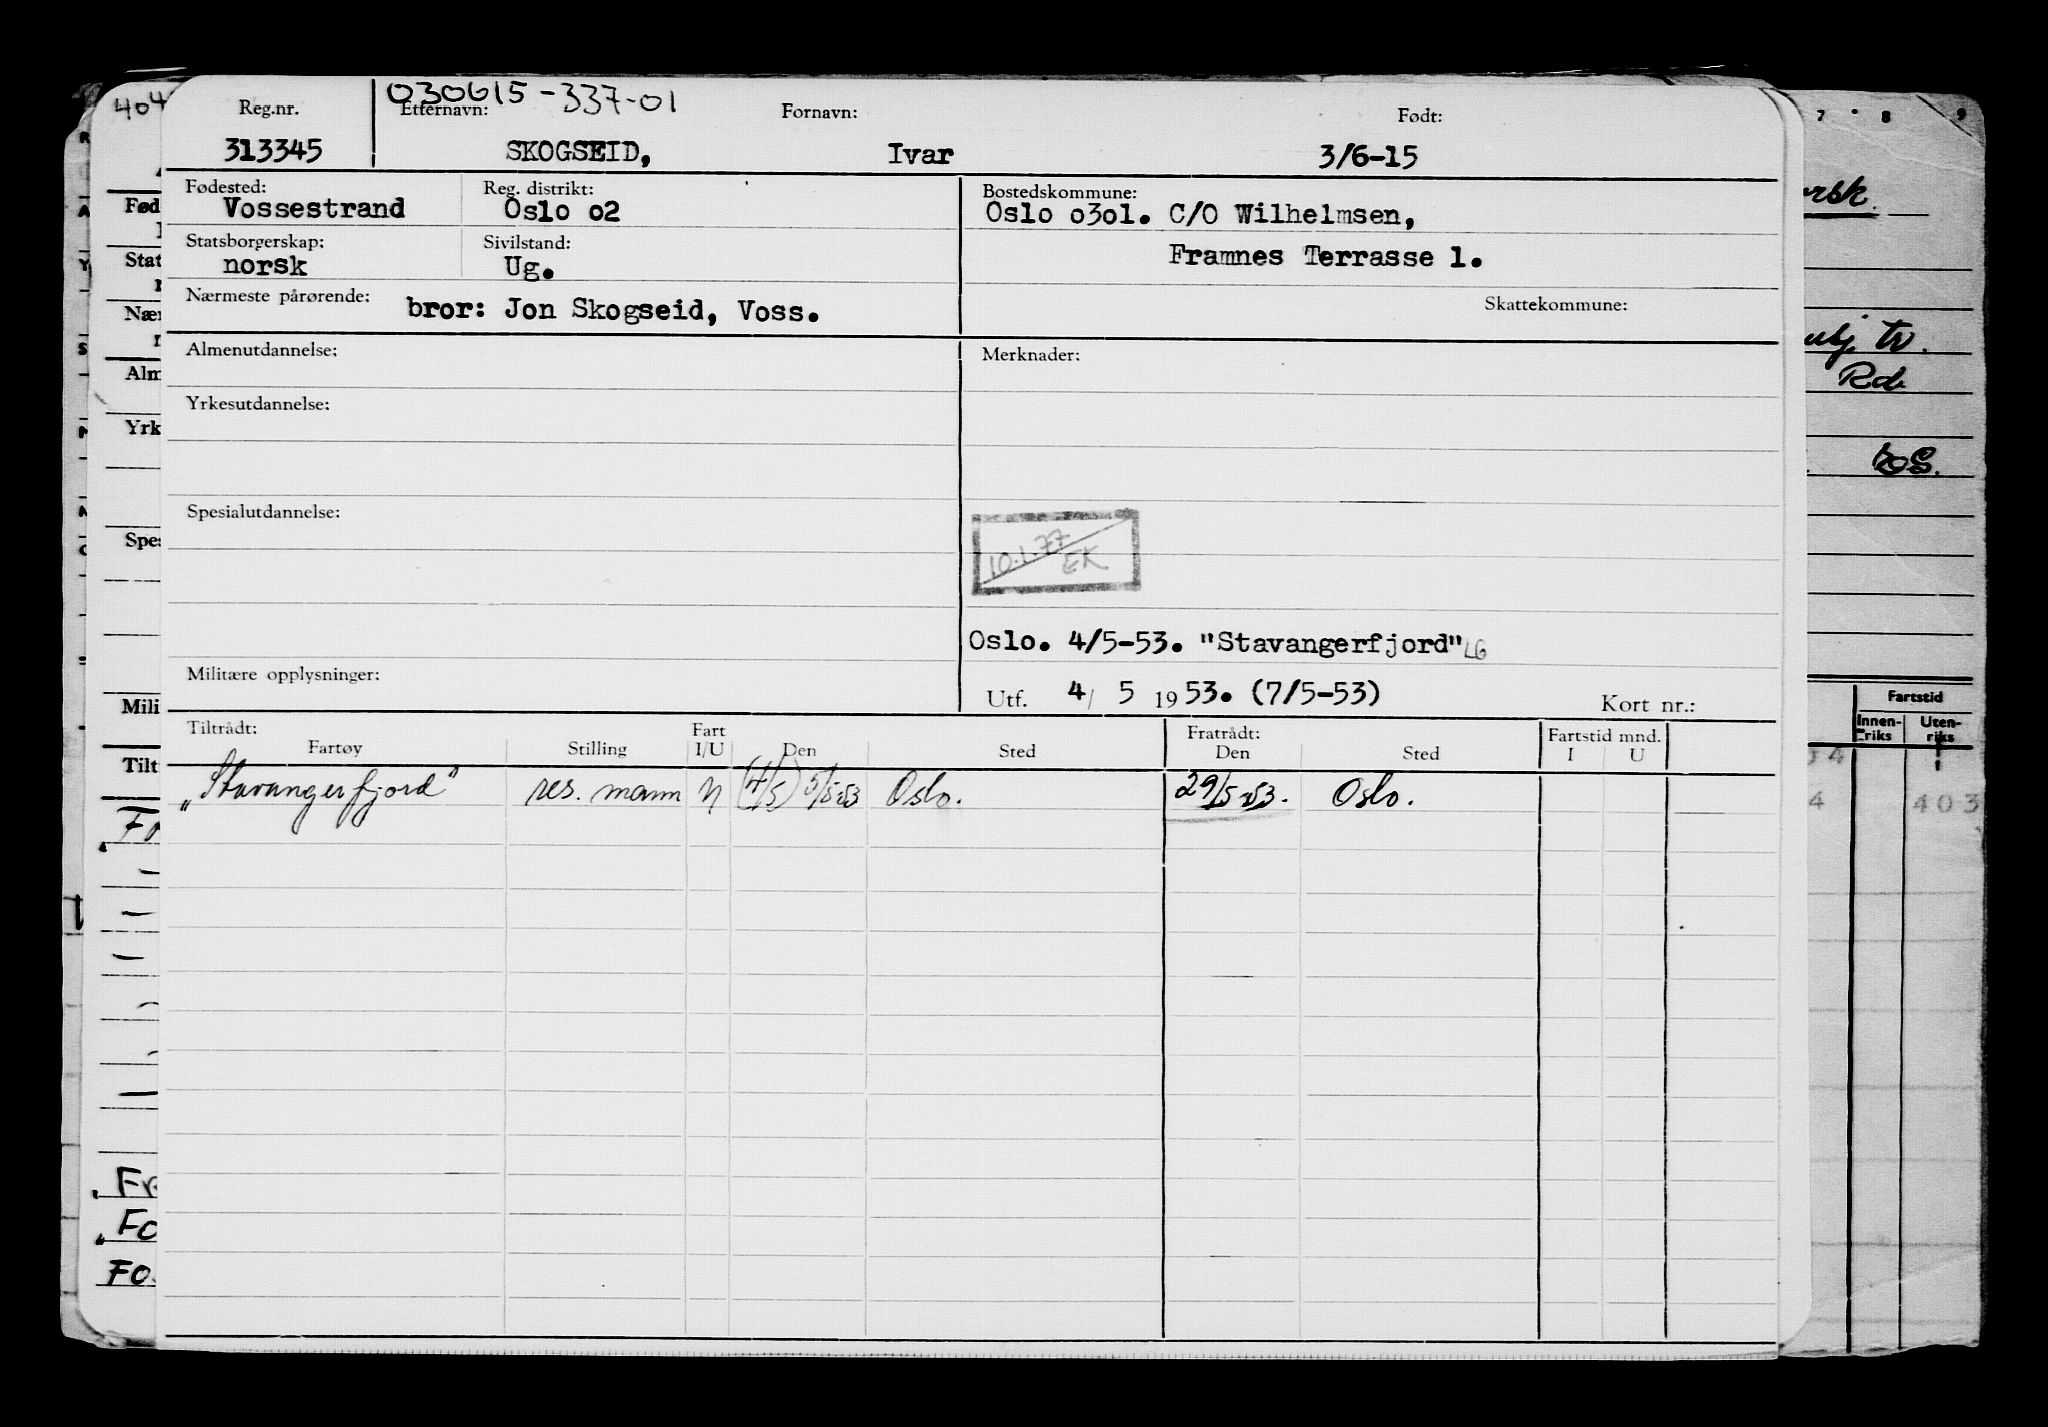 404
030615-337-01
Reg.nr. Etternavn: Fornavn: Født:
313345 SKOGSEID, Ivar 3/6-15
Fødested: Reg. distrikt: Bostedskommune:
Vossestrand Oslo o2 Oslo o3o1. C/O Wilhelmsen,
Statsborgerskap: Sivilstand:
norsk Ug. Framnes Terrasse 1.
Nærmeste pårørende: bror: Jon Skogseid, Voss. Skattekommune:
Almenutdannelse: Merknader:
Yrkesutdannelse:
Spesialutdannelse:
10.1.77
EK
Oslo. 4/5-53. "Stavangerfjord" LG
Militære opplysninger:
Utf. 4/ 5 1953. (7/5-53) Kort nr.:
Tiltrådt: Fart Fratrådt: Fartstid mnd.
Fartøy Stilling I/U Den Sted Den Sted I U
"Stavangerfjord" res. mann U (4/5) 5/5-53 Oslo. 29/5-53. Oslo.
7 8 9
Rd.
Fartstid
Innen-riks Uten-riks
4 403